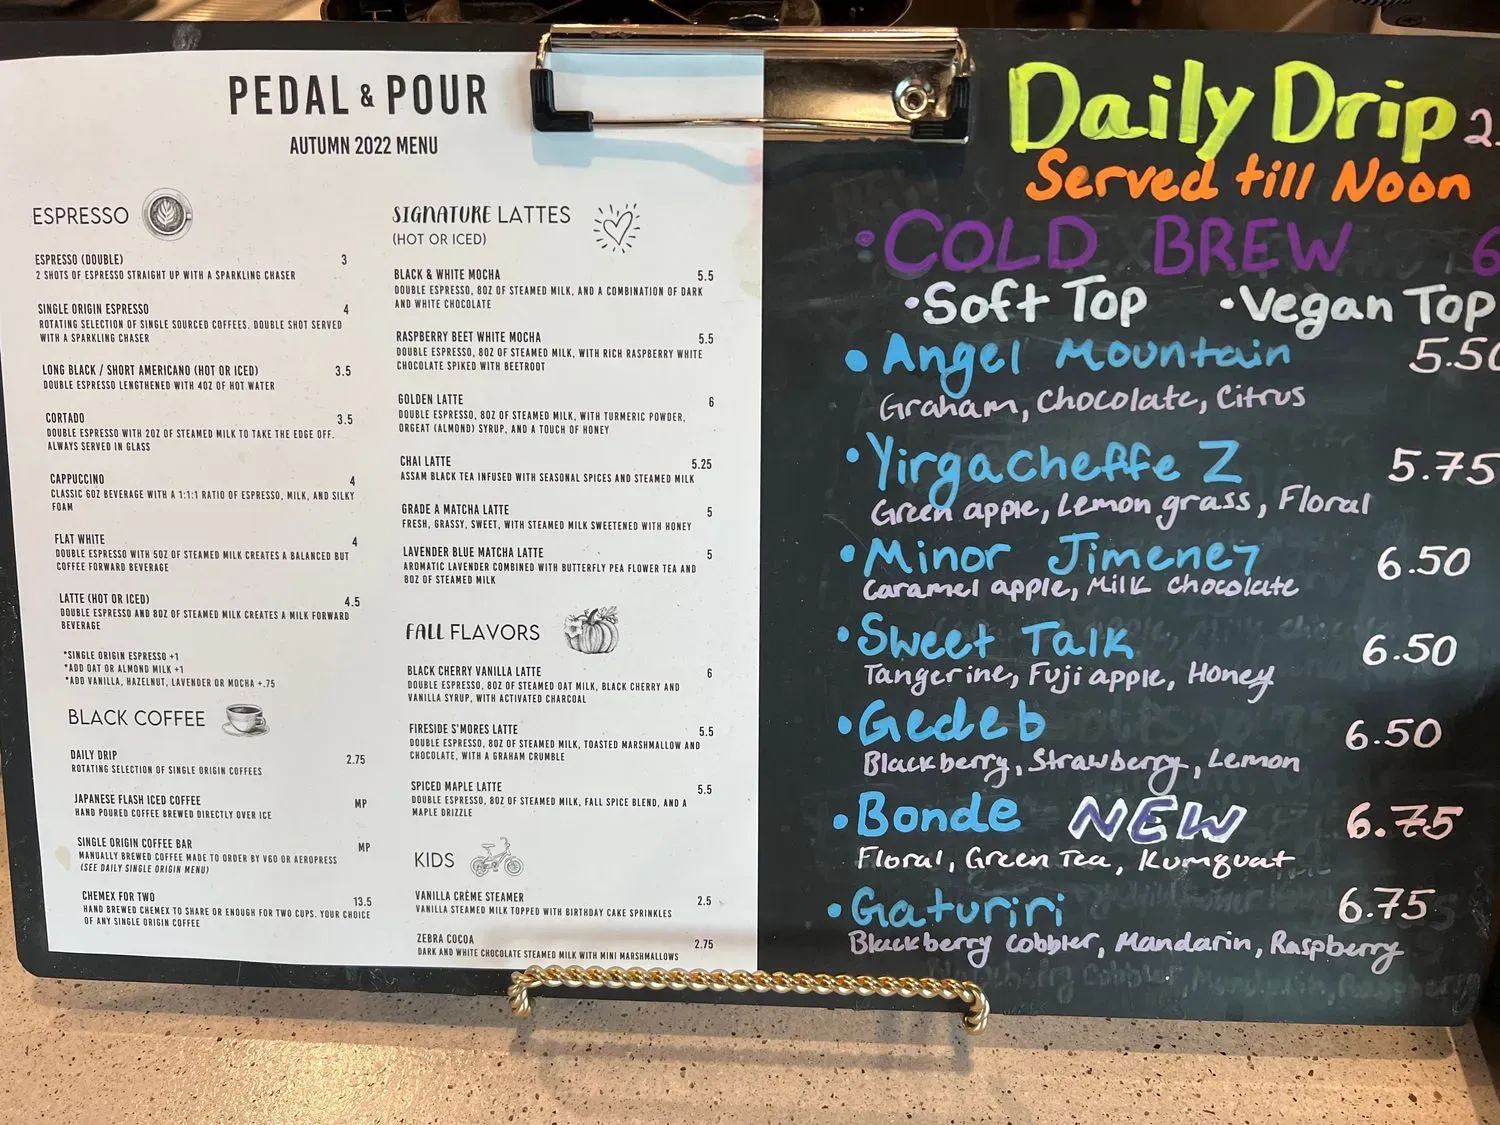 PEDAL & POUR
AUTUMN 2022 MENU
ESPRESSO
ESPRESSO (DOUBLE) 3
2 SHOTS OF ESPRESSO STRAIGHT UP WITH A SPARKLING CHASER
SINGLE ORIGIN ESPRESSO 4
ROTATING SELECTION OF SINGLE SOURCED COFFEES. DOUBLE SHOT SERVED
WITH A SPARKLING CHASER
LONG BLACK / SHORT AMERICANO (HOT OR ICED) 3.5
DOUBLE ESPRESSO LENGTHENED WITH 4OZ OF HOT WATER
CORTADO 3.5
DOUBLE ESPRESSO WITH 2OZ OF STEAMED MILK TO TAKE THE EDGE OFF.
ALWAYS SERVED IN GLASS
CAPPUCCINO 4
CLASSIC 6OZ BEVERAGE WITH A 1:1:1 RATIO OF ESPRESSO, MILK, AND SILKY
FOAM
FLAT WHITE 4
DOUBLE ESPRESSO WITH 5OZ OF STEAMED MILK CREATES A BALANCED BUT
COFFEE FORWARD BEVERAGE
LATTE (HOT OR ICED) 4.5
DOUBLE ESPRESSO AND 8OZ OF STEAMED MILK CREATES A MILK FORWARD
BEVERAGE
*SINGLE ORIGIN ESPRESSO +1
*ADD OAT OR ALMOND MILK +1
*ADD VANILLA, HAZELNUT, LAVENDER OR MOCHA +.75
BLACK COFFEE
DAILY DRIP 2.75
ROTATING SELECTION OF SINGLE ORIGIN COFFEES
JAPANESE FLASH ICED COFFEE MP
HAND POURED COFFEE BREWED DIRECTLY OVER ICE
SINGLE ORIGIN COFFEE BAR MP
MANUALLY BREWED COFFEE MADE TO ORDER BY V60 OR AEROPRESS
(SEE DAILY SINGLE ORIGIN MENU)
CHEMEX FOR TWO 13.5
HAND BREWED CHEMEX TO SHARE OR ENOUGH FOR TWO CUPS. YOUR CHOICE
OF ANY SINGLE ORIGIN COFFEE
SIGNATURE LATTES
(HOT OR ICED)
BLACK & WHITE MOCHA 5.5
DOUBLE ESPRESSO, 8OZ OF STEAMED MILK, AND A COMBINATION OF DARK
AND WHITE CHOCOLATE
RASPBERRY BEET WHITE MOCHA 5.5
DOUBLE ESPRESSO, 8OZ OF STEAMED MILK, WITH RICH RASPBERRY WHITE
CHOCOLATE SPIKED WITH BEETROOT
GOLDEN LATTE 6
DOUBLE ESPRESSO, 8OZ OF STEAMED MILK, WITH TURMERIC POWDER,
ORGEAT (ALMOND) SYRUP, AND A TOUCH OF HONEY
CHAI LATTE 5.25
ASSAM BLACK TEA INFUSED WITH SEASONAL SPICES AND STEAMED MILK
GRADE A MATCHA LATTE 5
FRESH, GRASSY, SWEET, WITH STEAMED MILK SWEETENED WITH HONEY
LAVENDER BLUE MATCHA LATTE 5
AROMATIC LAVENDER COMBINED WITH BUTTERFLY PEA FLOWER TEA AND
8OZ OF STEAMED MILK
FALL FLAVORS
BLACK CHERRY VANILLA LATTE 6
DOUBLE ESPRESSO, 8OZ OF STEAMED OAT MILK, BLACK CHERRY AND
VANILLA SYRUP, WITH ACTIVATED CHARCOAL
FIRESIDE S'MORES LATTE 5.5
DOUBLE ESPRESSO, 8OZ OF STEAMED MILK, TOASTED MARSHMALLOW AND
CHOCOLATE, WITH A GRAHAM CRUMBLE
SPICED MAPLE LATTE 5.5
DOUBLE ESPRESSO, 8OZ OF STEAMED MILK, FALL SPICE BLEND, AND A
MAPLE DRIZZLE
KIDS
VANILLA CRÈME STEAMER 2.5
VANILLA STEAMED MILK TOPPED WITH BIRTHDAY CAKE SPRINKLES
ZEBRA COCOA 2.75
DARK AND WHITE CHOCOLATE STEAMED MILK WITH MINI MARSHMALLOWS
Daily Drip 2.
Served till Noon
•COLD BREW 6
•Soft Top •Vegan Top
•Angel Mountain 5.50
Graham, Chocolate, Citrus
•Yirgacheffe Z 5.75
Green apple, Lemon grass, Floral
•Minor Jimenez 6.50
Caramel apple, Milk chocolate
•Sweet Talk 6.50
Tangerine, Fuji apple, Honey
•Gedeb 6.50
Blackberry, Strawberry, Lemon
•Bonde NEW 6.75
Floral, Green Tea, Kumquat
•Gaturiri 6.75
Blackberry cobbler, Mandarin, Raspberry